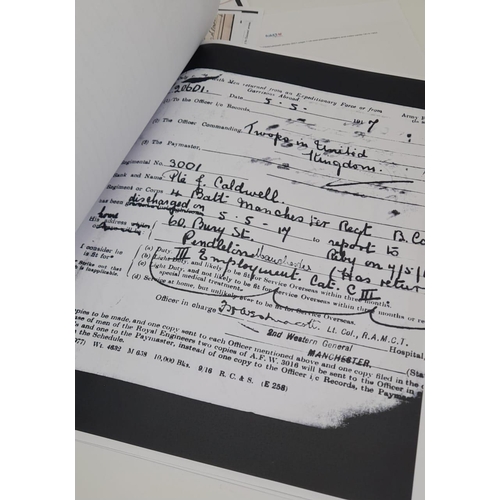 with Men returned from an Expeditionary Force or from
Garrison Abroad
Army F
20601.
(1) To the Officer i/c Records, Date 5.5. 1917
(2) The Officer Commanding, Troops in United
Kingdom.
(3) The Paymaster,
Regimental No. 3001
Rank and Name Pte J. Caldwell.
Regiment or Corps 4 Batt. Manchester Regt B. Co
has been discharged on 5.5.17 to report to
this address 60 Bury St. Rely on 4/5/1
Pendleton Manchester (Has retur
III Employment. Cat. C III.
I consider he
is fit for*
* Strike out that
is inapplicable.
(a) Duty,
(b) Light Duty, and likely to be fit for Service Overseas within three months.
(c) Light Duty, and not likely to be fit for Service Overseas within three months, or
special medical treatment.
(d) Service at home, but unlikely ever to be fit for Service Overseas.
Officer in charge Lt. Col., R.A.M.C.T.
2nd Western General Hospital,
MANCHESTER. (Stat
opies to be made, and one copy sent to each Officer mentioned above and one copy filed in the
ase of men of the Royal Engineers two copies of A.F.W. 3016 will be sent to the Officer in
s and one to the Paymaster, instead of one copy to the Officer i/c Records, the Payma
the Schedule.
977) Wt. 4632 M 638 10,000 Bks. 9/16 R. C. & S. (E 256)